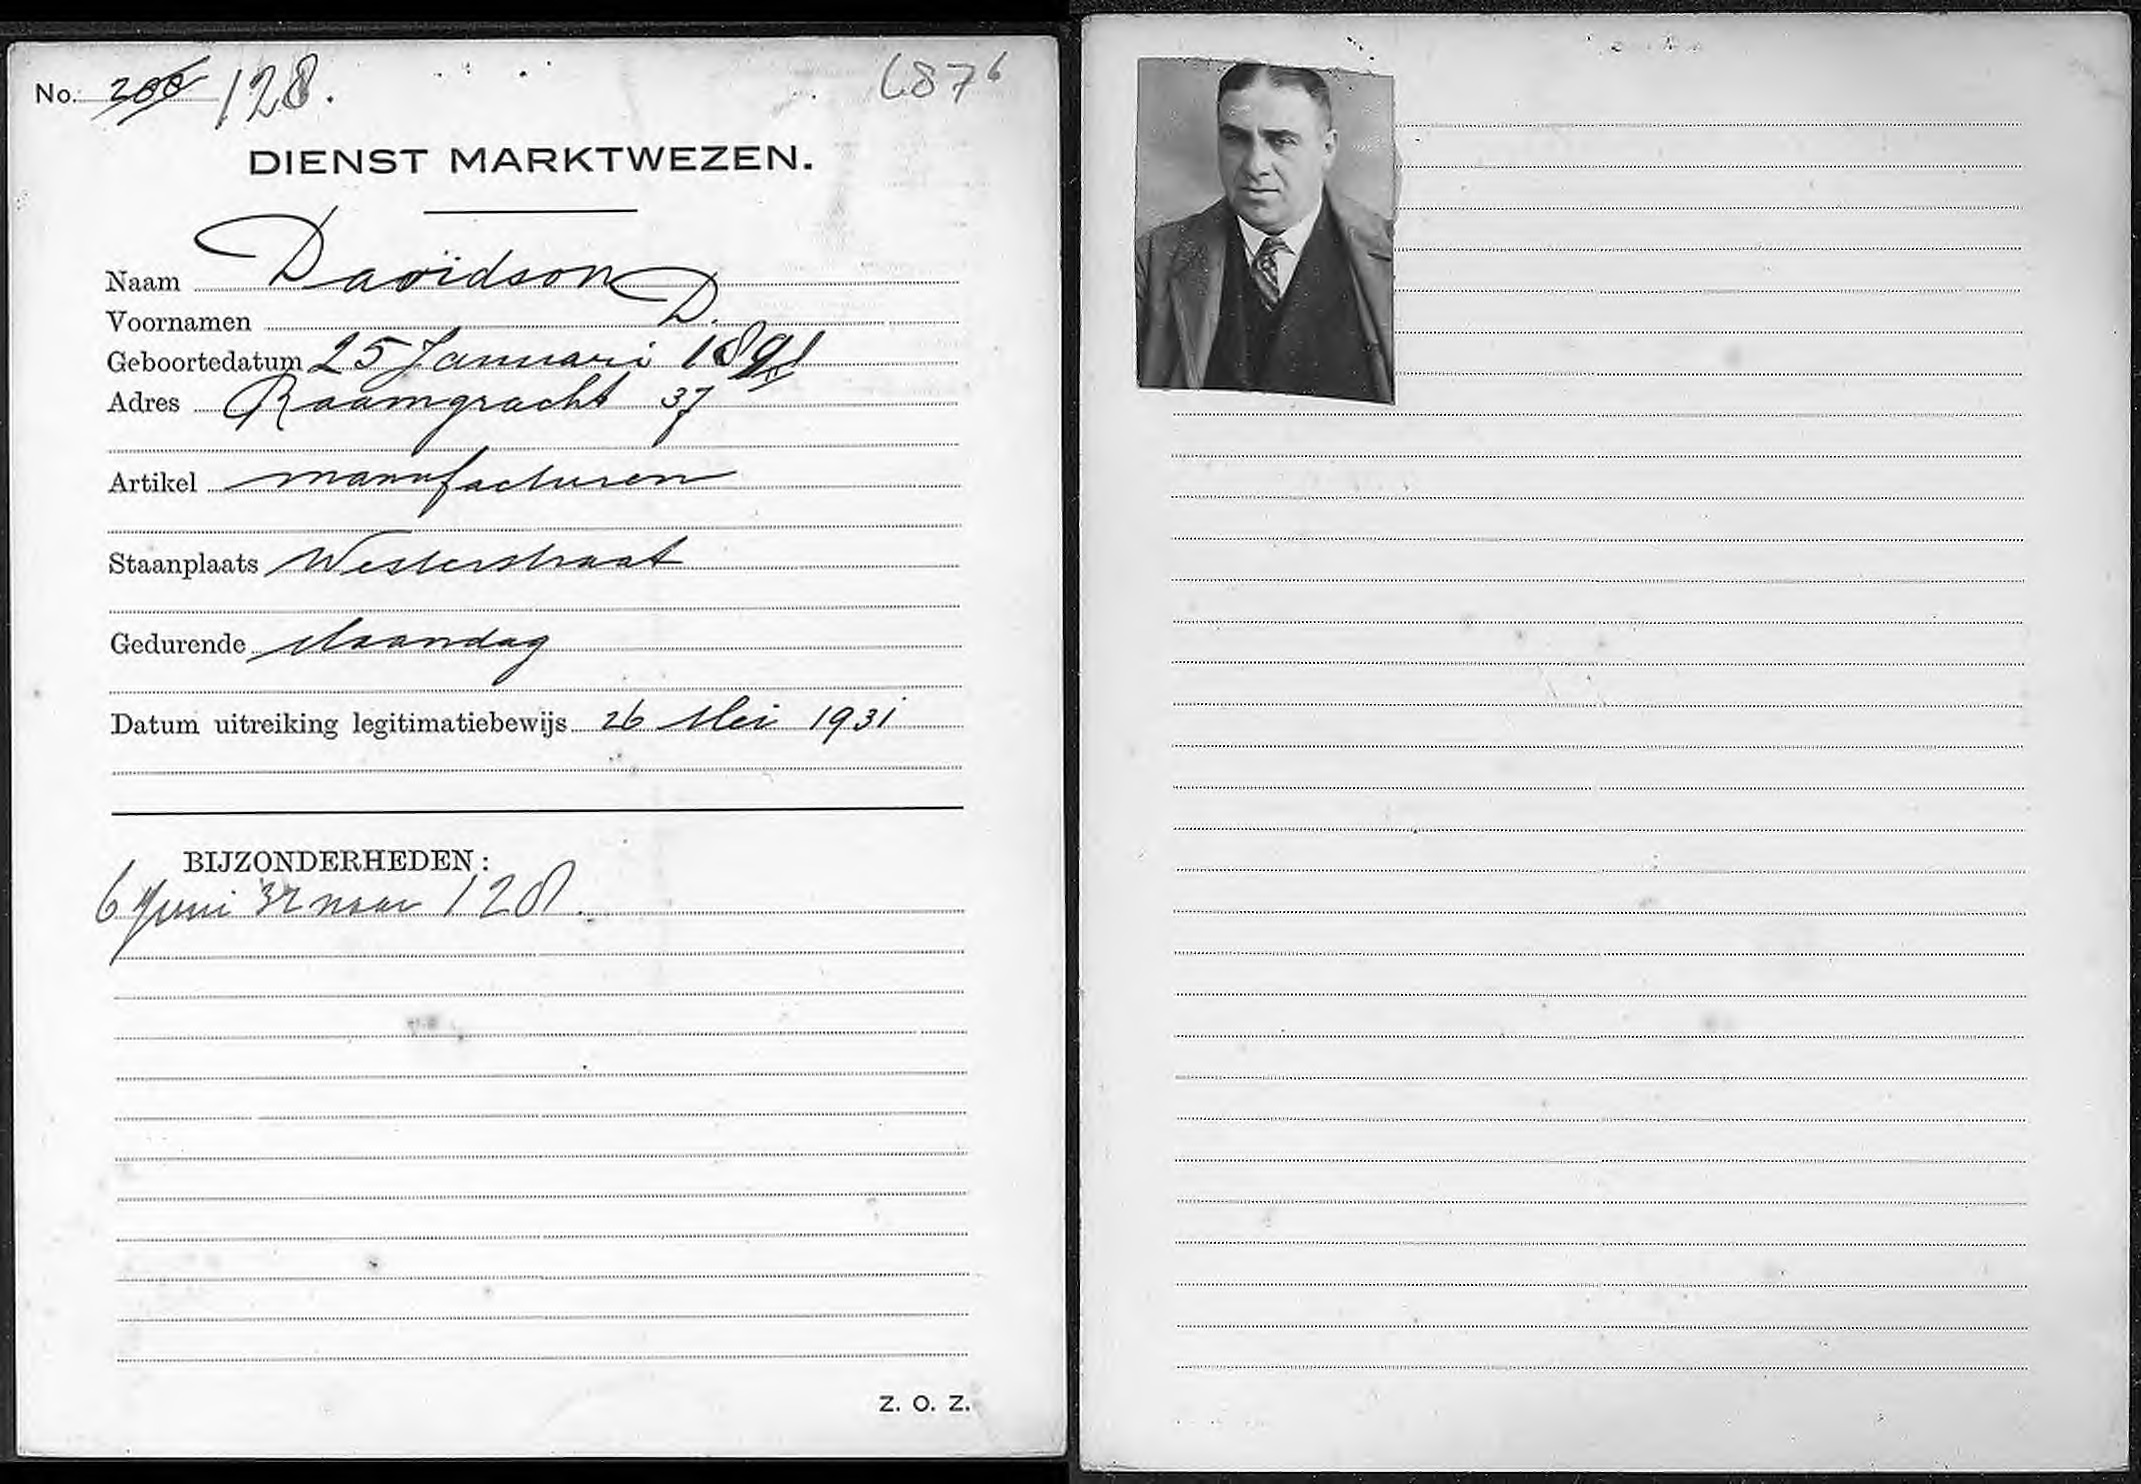 No. 200 128.
687⁶
DIENST MARKTWEZEN.
Naam Davidson
Voornamen D.
Geboortedatum 25 Januari 1891
Adres Raamgracht 37
Artikel manufacturen
Staanplaats Westerstraat
Gedurende Maandag
Datum uitreiking legitimatiebewijs 26 Mei 1931
BIJZONDERHEDEN:
6 Juni 32 naar 128.
Z. O. Z.